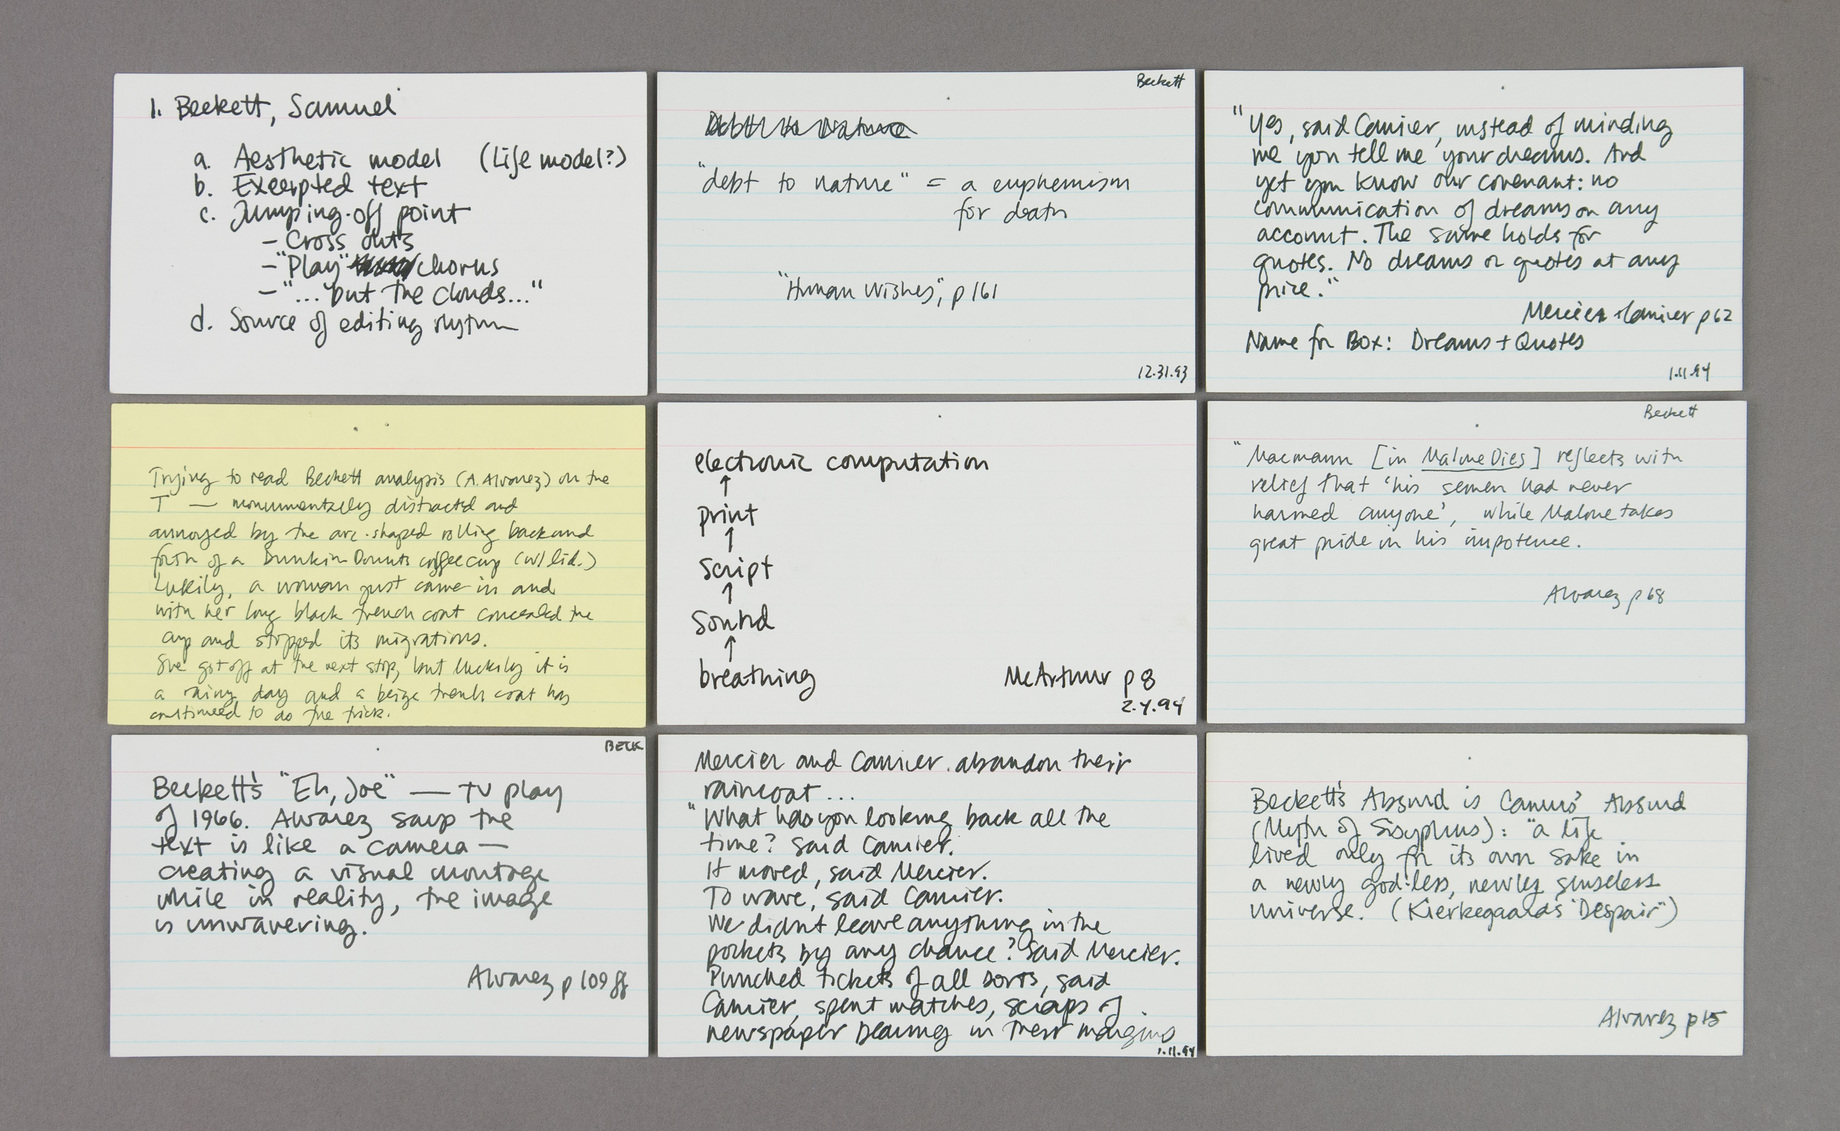 1. Beckett, Samuel
a. Aesthetic model (Life model?)
b. Excerpted text
c. Jumping-off point
- Cross outs
- "Play" chorus
- "...but the clouds..."
d. Source of editing rhythm
Beckett
Debt to Nature
"debt to nature" = a euphemism
for death
"Human Wishes", p 161
12.31.93
"Yes, said Camier, instead of minding
me you tell me your dreams. And
yet you know our covenant: no
communication of dreams on any
account. The same holds for
quotes. No dreams or quotes at any
price."
Mercier + Camier p 62
Name for Box: Dreams + Quotes
1.11.94
Trying to read Beckett analysis (A. Alvarez) on the
T — monumentally distracted and
annoyed by the arc-shaped rolling back and
forth of a Dunkin Donuts coffee cup (w/ lid.)
Lukily, a woman just came in and
with her long black trench coat concealed the
cup and stopped its migrations.
She got off at the next stop, but luckily it is
a rainy day and a beige trench coat has
continued to do the trick.
electronic computation
↑
print
↑
script
↑
sound
↑
breathing
McArthur p 8
2.4.94
Beckett
"Macmann [in Malone Dies] reflects with
relief that 'his semen had never
harmed anyone', while Malone takes
great pride in his impotence.
Alvarez p 68
BECK
Beckett's "Eh, Joe" — TV play
of 1966. Alvarez says the
text is like a camera —
creating a visual montage
while in reality, the image
is unwavering.
Alvarez p 109 ff
Mercier and Camier abandon their
raincoat...
"What has you looking back all the
time? said Camier.
It moved, said Mercier.
To wave, said Camier.
We didn't leave anything in the
pockets by any chance? said Mercier.
Punched tickets of all sorts, said
Camier, spent matches, scraps of
newspaper bearing in their margins
1.11.94
Beckett's Absurd is Camus' Absurd
(Myth of Sisyphus): "a life
lived only for its own sake in
a newly god-less, newly senseless
universe. (Kierkegaard's "Despair")
Alvarez p 15